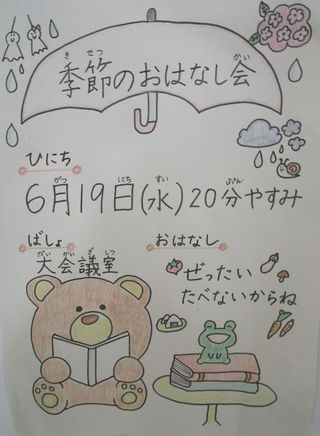 季節のおはなし会
きせつ かい
ひにち
6月19日(水)20分やすみ
がつ にち すい ぷん
ばしょ
大会議室
だいかいぎしつ
おはなし
ぜったい
たべないからね